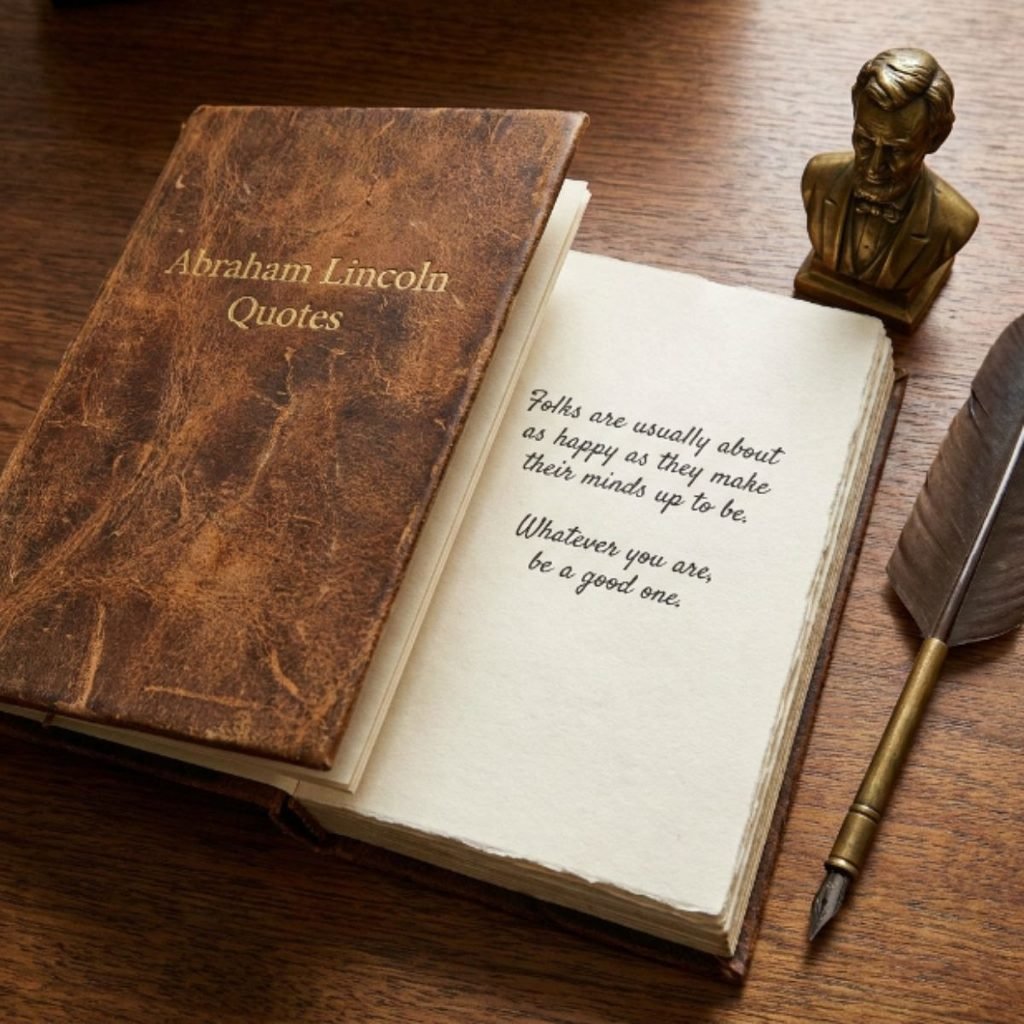 Abraham Lincoln
Quotes
Folks are usually about
as happy as they make
their minds up to be.
Whatever you are,
be a good one.